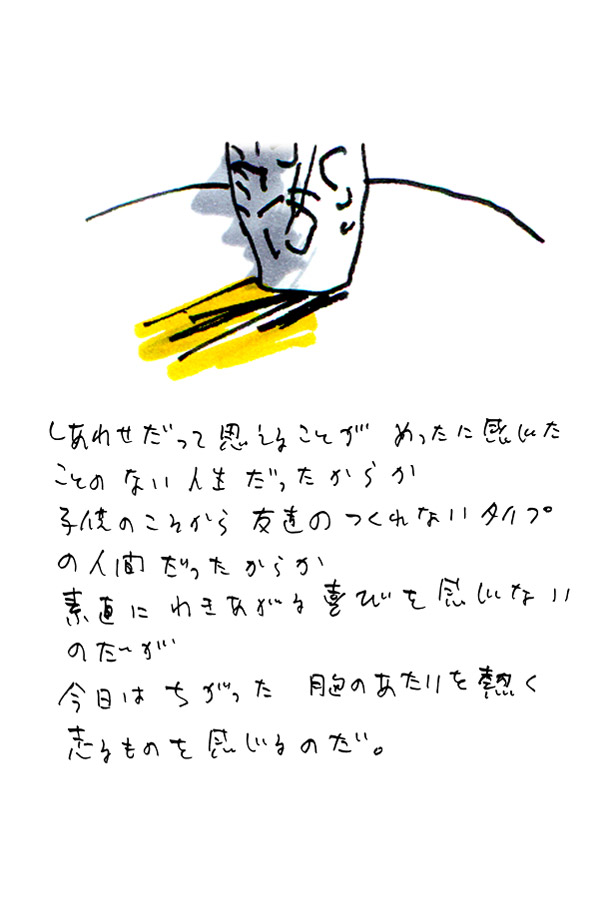 しあわせだって思えることが めったに感じた
ことのない人生だったからか
子供のころから友達のつくれないタイプ
の人間だったからか
素直にわきあがる喜びを感じない
のだが
今日はちがった 胸のあたりを熱く
走るものを感じるのだ。